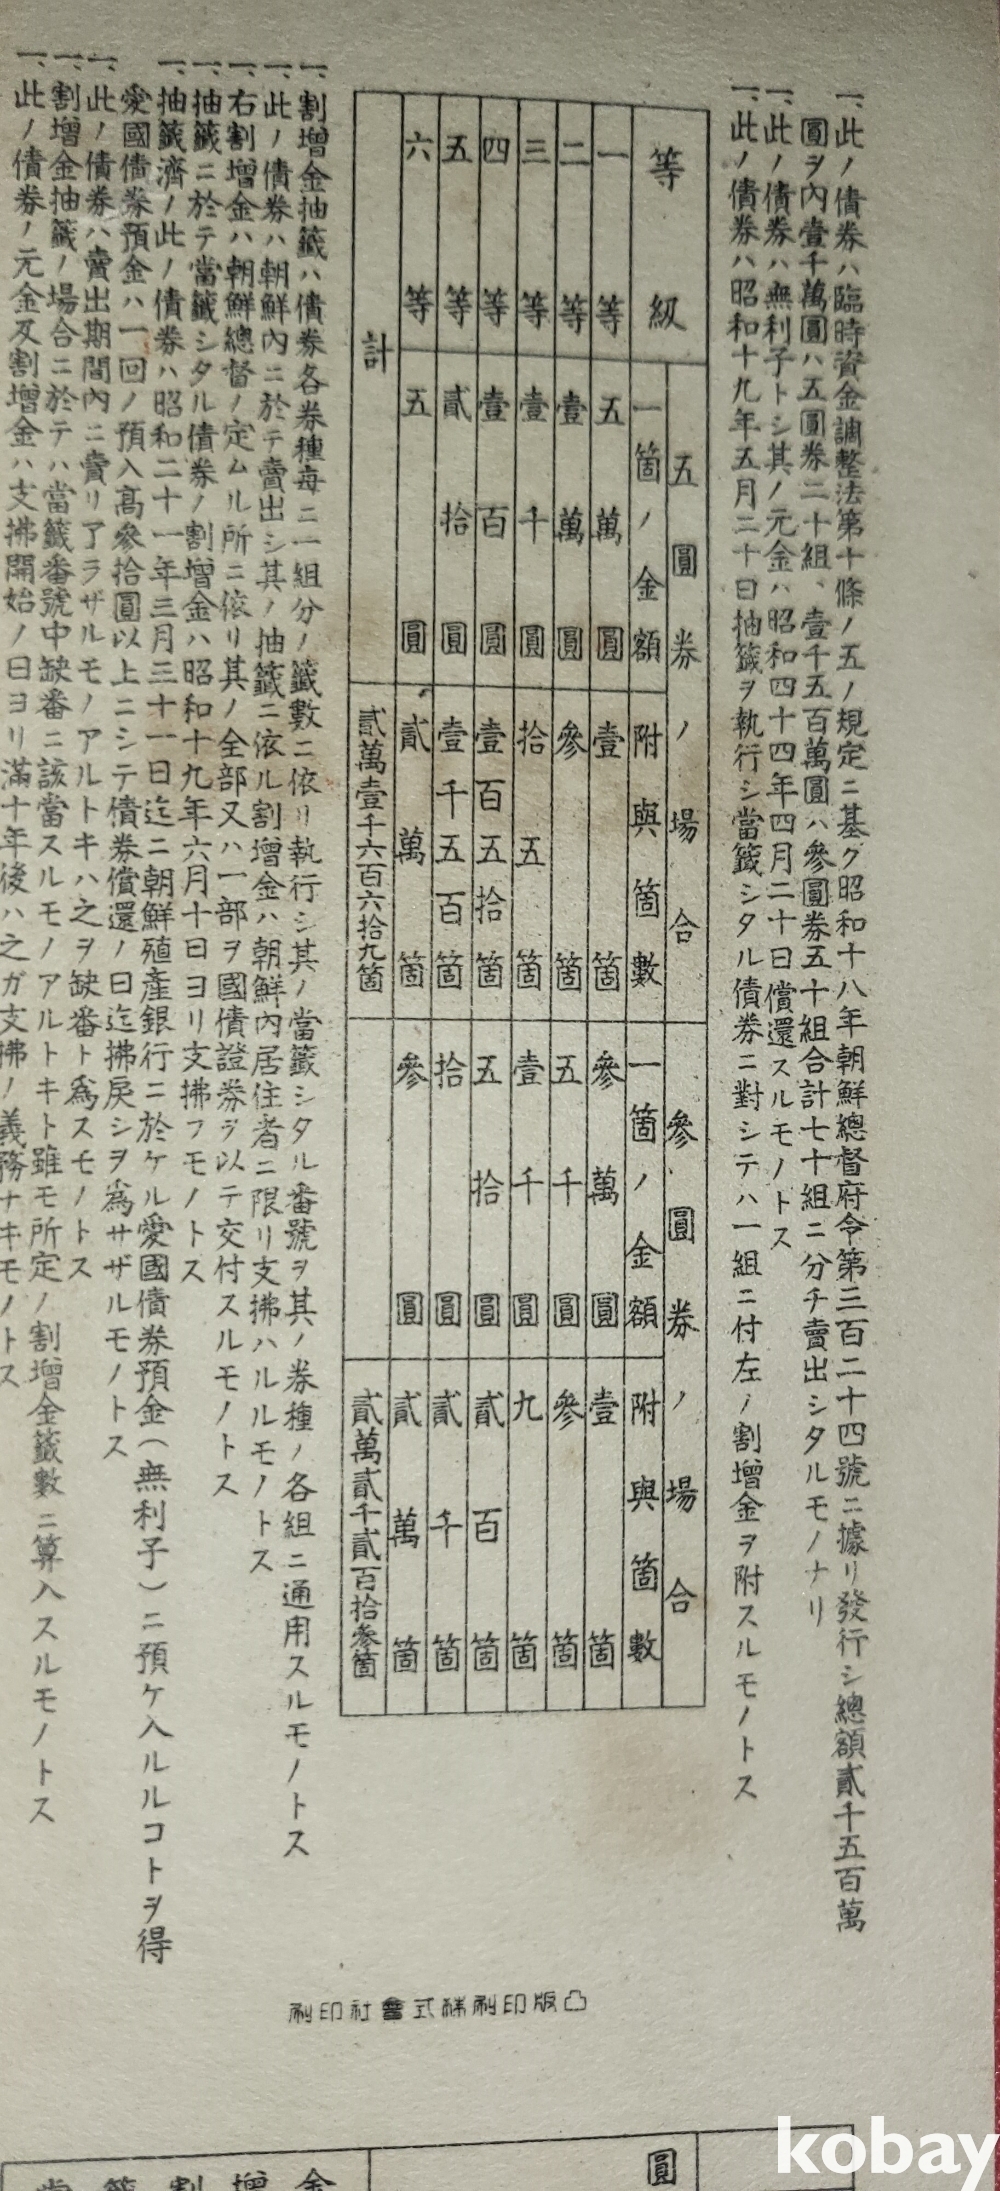 一、此ノ債券ハ臨時資金調整法第十條ノ五ノ規定ニ基ク昭和十八年朝鮮總督府令第三百二十四號ニ據リ發行シ總額貳千五百萬
圓ヲ內壹千萬圓ハ五圓券二十組、壹千五百萬圓ハ參圓券五十組合計七十組ニ分チ賣出シタルモノナリ
一、此ノ債券ハ無利子トシ其ノ元金ハ昭和四十四年四月二十日償還スルモノトス
一、此ノ債券ハ昭和十九年五月二十日抽籤ヲ執行シ當籤シタル債券ニ對シテハ一組ニ付左ノ割增金ヲ附スルモノトス
等級 五圓券ノ場合 參圓券ノ場合
一箇ノ金額 附與箇數 一箇ノ金額 附與箇數
一等 五萬圓 壹箇 參萬圓 壹箇
二等 壹萬圓 參箇 五千圓 參箇
三等 壹千圓 拾五箇 壹千圓 九箇
四等 壹百圓 壹百五拾箇 五拾圓 貳百箇
五等 貳拾圓 壹千五百箇 拾圓 貳千箇
六等 五圓 貳萬箇 參圓 貳萬箇
計 貳萬壹千六百六拾九箇 貳萬貳千貳百拾參箇
一、割增金抽籤ハ債券各券種每ニ一組分ノ籤數ニ依リ執行シ其ノ當籤シタル番號ヲ其ノ券種ノ各組ニ通用スルモノトス
一、此ノ債券ハ朝鮮內ニ於テ賣出シ其ノ抽籤ニ依ル割增金ハ朝鮮內居住者ニ限リ支拂ハルルモノトス
一、右割增金ハ朝鮮總督ノ定ムル所ニ依リ其ノ全部又ハ一部ヲ國債證券ヲ以テ交付スルモノトス
一、抽籤ニ於テ當籤シタル債券ノ割增金ハ昭和十九年六月十日ヨリ支拂フモノトス
一、抽籤濟ノ此ノ債券ハ昭和二十一年三月三十一日迄ニ朝鮮殖產銀行ニ於ケル愛國債券預金(無利子)ニ預ケ入ルルコトヲ得
愛國債券預金ハ一回ノ預入高參拾圓以上ニシテ債券償還ノ日迄拂戾シヲ爲サザルモノトス
一、此ノ債券ハ賣出期間內ニ賣リ了ラザルモノアルトキハ之ヲ缺番ト爲スモノトス
一、割增金抽籤ノ場合ニ於テハ當籤番號中缺番ニ該當スルモノアルトキト雖モ所定ノ割增金籤數ニ算入スルモノトス
一、此ノ債券ノ元金及割增金ハ支拂開始ノ日ヨリ滿十年後ハ之ガ支拂ノ義務ナキモノトス
刷印社會式株刷印版凸
圓
籤割增金
kobay